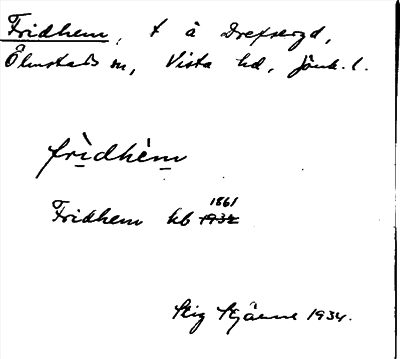 Fridhem, t å Drefseryd,
Ölmstads sn, Vista hd, Jönk. l.
frìdhèm
Fridhem kb 1861 1934
Stig Stjärne 1934.